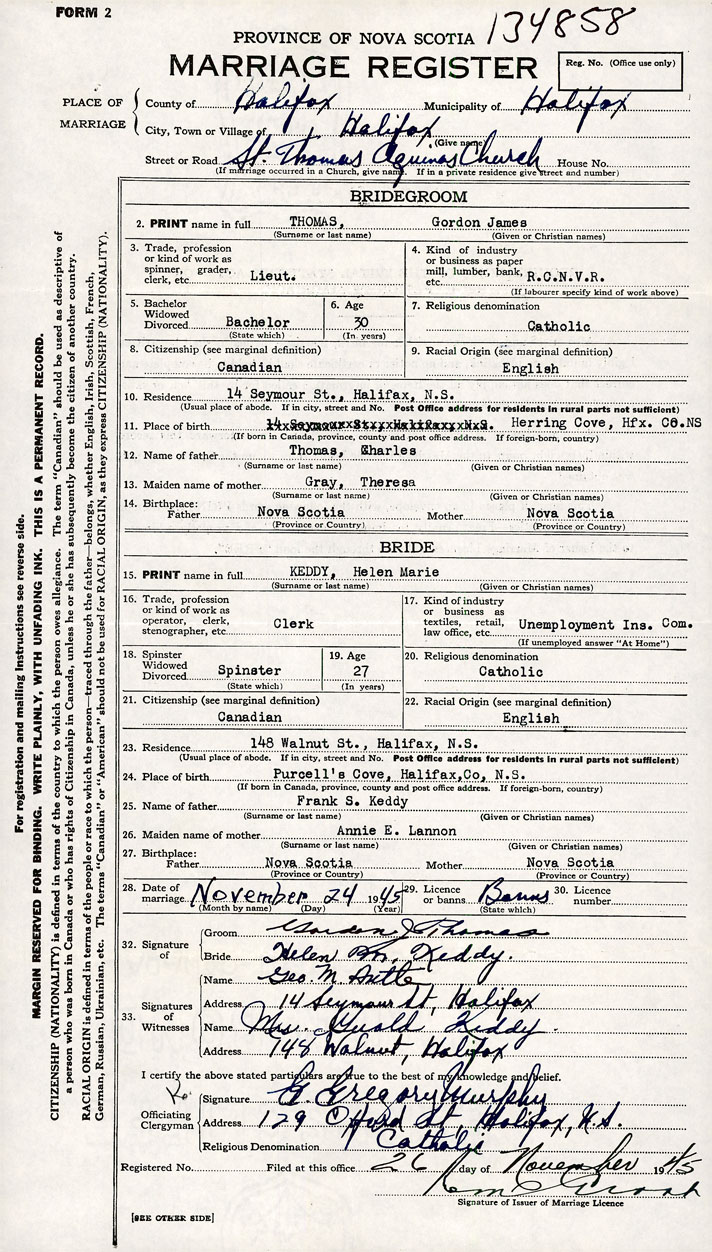 FORM 2
134858
PROVINCE OF NOVA SCOTIA
MARRIAGE REGISTER
Reg. No. (Office use only)
PLACE OF MARRIAGE
County of Halifax Municipality of Halifax
City, Town or Village of Halifax
(Give name)
Street or Road St. Thomas Aquinas Church House No.
(If marriage occurred in a Church, give name. If in a private residence give street and number)
BRIDEGROOM
2. PRINT name in full THOMAS, Gordon James
(Surname or last name) (Given or Christian names)
3. Trade, profession or kind of work as spinner, grader, clerk, etc. Lieut.
4. Kind of industry or business as paper mill, lumber, bank, etc. R.C.N.V.R.
(If labourer specify kind of work above)
5. Bachelor Widowed Divorced Bachelor
(State which)
6. Age 30
(In years)
7. Religious denomination
Catholic
8. Citizenship (see marginal definition)
Canadian
9. Racial Origin (see marginal definition)
English
10. Residence 14 Seymour St., Halifax, N.S.
(Usual place of abode. If in city, street and No. Post Office address for residents in rural parts not sufficient)
11. Place of birth Herring Cove, Hfx. Co.NS
(If born in Canada, province, county and post office address. If foreign-born, country)
12. Name of father Thomas, Charles
(Surname or last name) (Given or Christian names)
13. Maiden name of mother Gray, Theresa
(Surname or last name) (Given or Christian names)
14. Birthplace:
Father Nova Scotia Mother Nova Scotia
(Province or Country) (Province or Country)
BRIDE
15. PRINT name in full KEDDY, Helen Marie
(Surname or last name) (Given or Christian names)
16. Trade, profession or kind of work as operator, clerk, stenographer, etc. Clerk
17. Kind of industry or business as textiles, retail, law office, etc. Unemployment Ins. Com.
(If unemployed answer "At Home")
18. Spinster Widowed Divorced Spinster
(State which)
19. Age 27
(In years)
20. Religious denomination
Catholic
21. Citizenship (see marginal definition)
Canadian
22. Racial Origin (see marginal definition)
English
23. Residence 148 Walnut St., Halifax, N.S.
(Usual place of abode. If in city, street and No. Post Office address for residents in rural parts not sufficient)
24. Place of birth Purcell's Cove, Halifax,Co, N.S.
(If born in Canada, province, county and post office address. If foreign-born, country)
25. Name of father Frank S. Keddy
(Surname or last name) (Given or Christian names)
26. Maiden name of mother Annie E. Lannon
(Surname or last name) (Given or Christian names)
27. Birthplace:
Father Nova Scotia Mother Nova Scotia
(Province or Country) (Province or Country)
28. Date of marriage November 24 1945
(Month by name) (Day) (Year)
29. Licence or banns Banns
(State which)
30. Licence number
32. Signature of
Groom Gordon J Thomas
Bride Helen M. Keddy.
33. Signatures of Witnesses
Name Geo. M.
Address 14 Seymour St, Halifax
Name Mrs. Keddy.
Address 148 Walnut, Halifax
I certify the above stated particulars are true to the best of my knowledge and belief.
Officiating Clergyman
Signature G. Gregory Murphy
Address 129 Oxford St, Halifax, N.S.
Religious Denomination Catholic
Registered No. Filed at this office 26 day of November 1945
Signature of Issuer of Marriage Licence
[SEE OTHER SIDE]
For registration and mailing Instructions see reverse side.
MARGIN RESERVED FOR BINDING. WRITE PLAINLY, WITH UNFADING INK. THIS IS A PERMANENT RECORD.
CITIZENSHIP (NATIONALITY) is defined in terms of the country to which the person owes allegiance. The term "Canadian" should be used as descriptive of
a person who was born in Canada or who has rights of Citizenship in Canada, unless he or she has subsequently become the citizen of another country.
RACIAL ORIGIN is defined in terms of the people or race to which the person—traced through the father—belongs, whether English, Irish, Scottish, French,
German, Russian, Ukrainian, etc. The terms "Canadian" or "American" should not be used for RACIAL ORIGIN, as they express CITIZENSHIP (NATIONALITY).